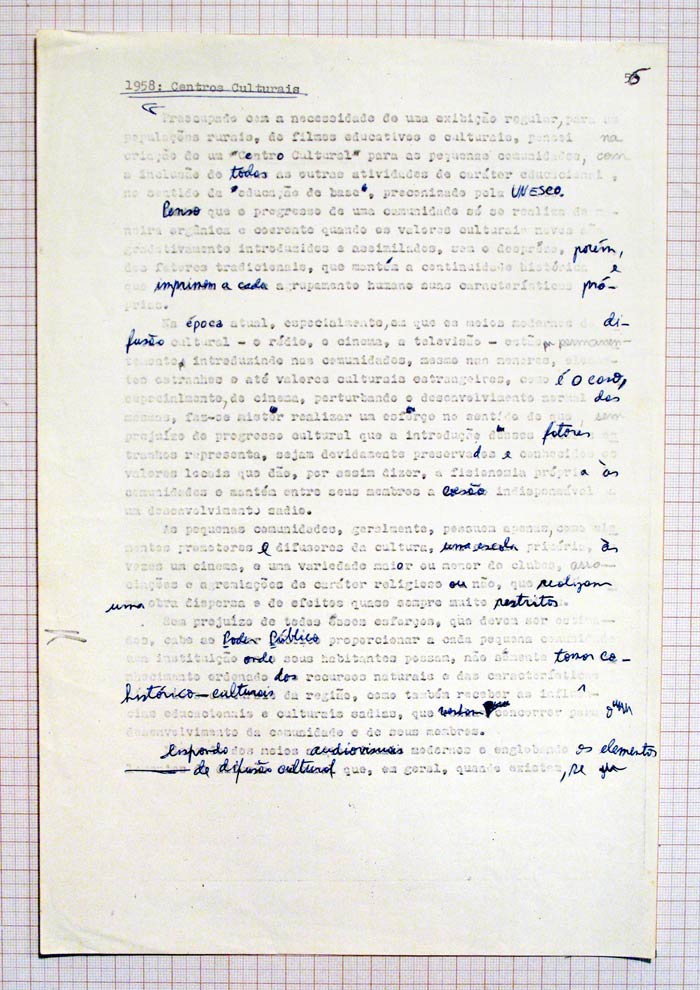 1958: Centros Culturais
Preocupado com a necessidade de uma exibição regular, para
populações rurais, de filmes educativos e culturais, pensei na
criação de um "Centro Cultural" para as pequenas comunidades, com
a inclusão de todas as outras atividades de caráter educacional,
no sentido da "educação de base", preconizada pela UNESCO.
Penso que o progresso de uma comunidade só se realiza de ma-
neira orgânica e coerente quando os valores culturais novos são
gradativamente introduzidos e assimilados, sem o desprêzo, porém,
dos fatores tradicionais, que mantém a continuidade histórica e
que imprimem a cada agrupamento humano suas características pró-
prias.
Na época atual, especialmente, em que os meios modernos de di-
fusão cultural - o rádio, o cinema, a televisão - estão permanen-
temente introduzindo nas comunidades, mesmo nas menores, elemen-
tos estranhos e até valores culturais estrangeiros, como é o caso,
especialmente, do cinema, perturbando o desenvolvimento normal das
mesmas, faz-se mister realizar um esforço no sentido de que sem
prejuízo do progresso cultural que a introdução dêsses fatores es-
tranhos representa, sejam devidamente preservados e conhecidos os
valores locais que dão, por assim dizer, a fisionomia própria às
comunidades e mantém entre seus membros a coesão indispensável a
um desenvolvimento sadio.
As pequenas comunidades, geralmente, possuem apenas, como ele-
mentos promotores e difusores da cultura, uma escola primária, às
vezes um cinema, e uma variedade maior ou menor de clubes, asso-
ciações e agremiações de caráter religioso ou não, que realizam
uma obra dispersa e de efeitos quase sempre muito restritos.
Sem prejuízo de todos êsses esforços, que devem ser estima-
dos, cabe ao Poder Público proporcionar a cada pequena comunidade
uma instituição onde seus habitantes possam, não sòmente tomar co-
nhecimento ordenado dos recursos naturais e das características
histórico-culturais da região, como também receber as influên-
cias educacionais e culturais sadias, que concorrem para
desenvolvimento da comunidade e de seus membros.
dos meios audiovisuais modernos e englobando os elementos
de difusão cultural que, em geral, quando existem, se